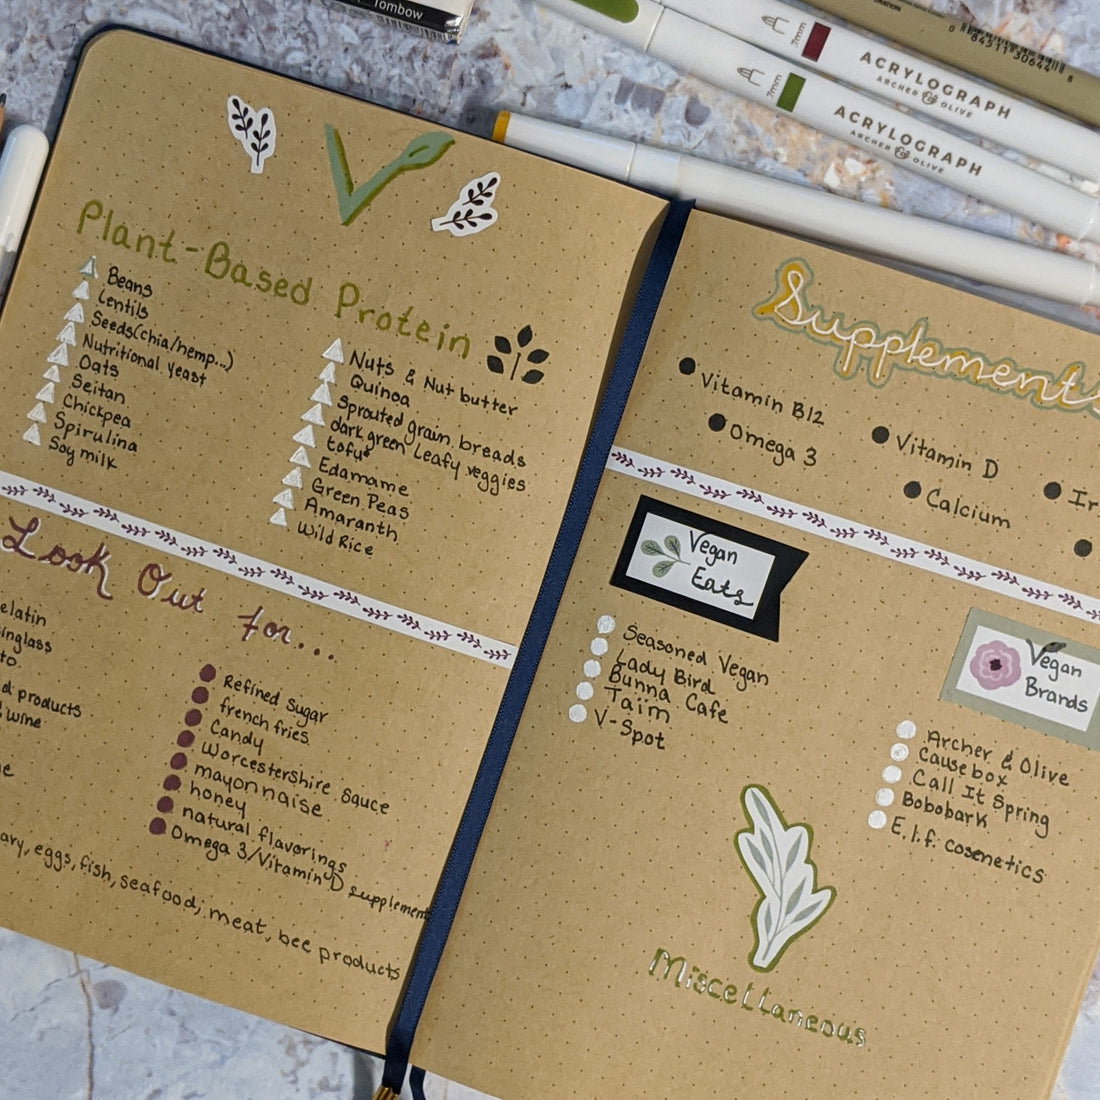 Tombow
7mm
ACRYLOGRAPH
ARCHER & OLIVE
7mm
ACRYLOGRAPH
ARCHER & OLIVE
V
Plant-Based Protein
Beans
Lentils
Seeds(chia/hemp...)
Nutritional Yeast
Oats
Seitan
Chickpea
Spirulina
Soy milk
Nuts & Nut butter
Quinoa
Sprouted grain breads
dark green leafy veggies
tofu
Edamame
Green Peas
Amaranth
Wild Rice
Look Out for...
elatin
inglass
to
d products
wine
e
Refined Sugar
french fries
Candy
Worcestershire Sauce
mayonnaise
honey
natural flavorings
Omega 3/Vitamin D supplement
ary, eggs, fish, seafood, meat, bee products
Supplements
Vitamin B12
Omega 3
Vitamin D
Calcium
Ir
Vegan
Eats
Seasoned Vegan
Lady Bird
Bunna Cafe
Taim
V-Spot
Vegan
Brands
Archer & Olive
Causebox
Call It Spring
Bobobark
E.l.f. cosenetics
Miscellaneous